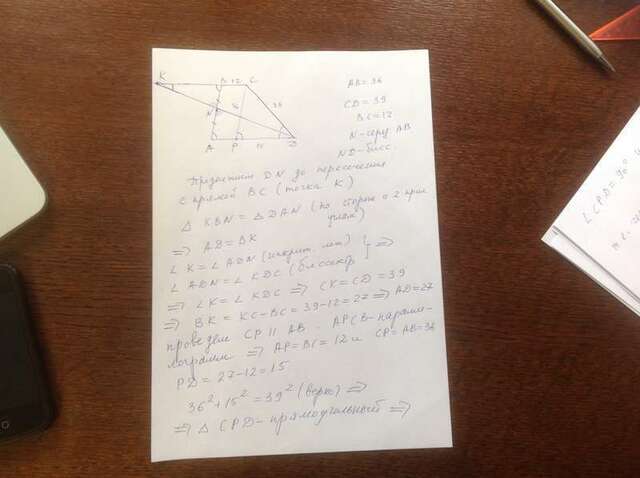 K
B 12 C
N
36
39
A P 15 D
AB = 36
CD = 39
BC = 12
N - серед AB
ND - бисс.
Продолжим DN до пересечения
с прямой BC (точка K)
△ KBN = △ DAN (по стороне и 2 прил
углам)
⇒ AD = BK
∠ K = ∠ ADN (накрест. леж)
∠ ADN = ∠ KDC (биссектр } ⇒
⇒ ∠ K = ∠ KDC ⇒ CK = CD = 39
⇒ BK = KC - BC = 39 - 12 = 27 ⇒ AD = 27
проведем CP || AB. APCB - паралле-
лограмм ⇒ AP = BC = 12 и CP = AB = 36
PD = 27 - 12 = 15
36² + 15² = 39² (верно) ⇒
⇒ △ CPD - прямоугольный ⇒
∠ CPD = 90°